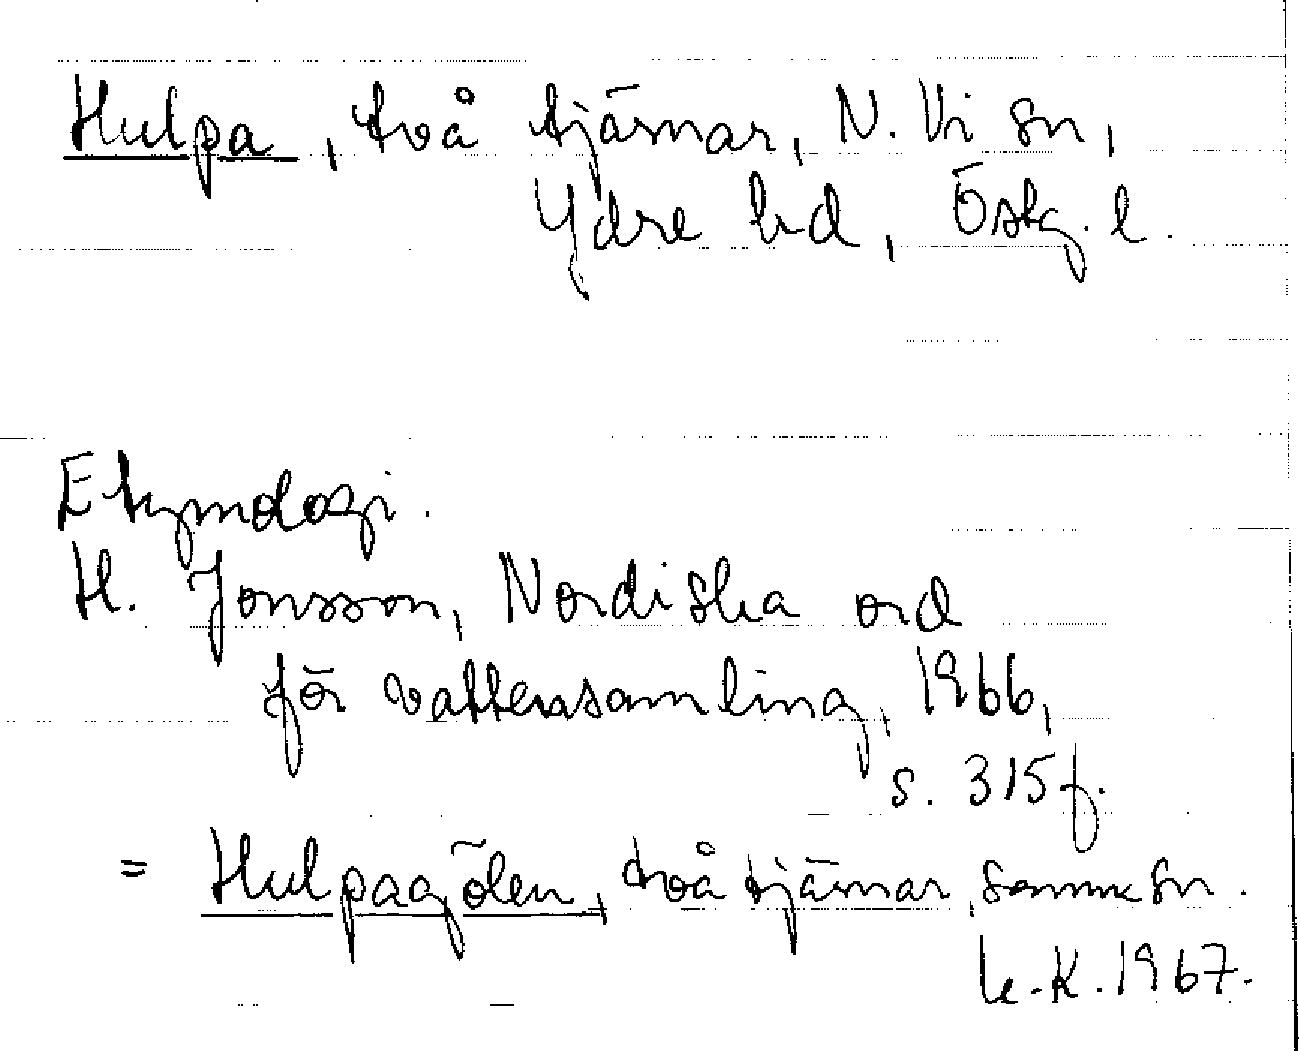 Hulpa, två tjärnar, N. Vi sn,
Ydre hd, Östg. l.
Etymologi.
H. Jonsson, Nordiska ord
för vattensamling, 1966,
s. 315 f.
= Hulpagölen, två tjärnar, samma sn.
K. 1967.